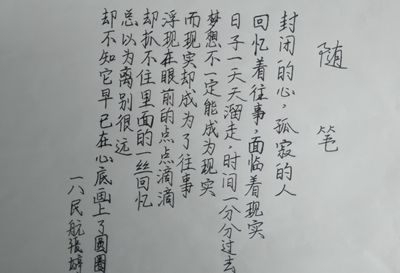 随笔
封闭的心，孤寂的人
回忆着往事，面临着现实
日子一天天溜走，时间一分分过去
梦想不一定能成为现实
而现实却成为了往事
浮现在眼前的点点滴滴
却抓不住里面的一丝回忆
总以为离别很远
却不知它早已在心底画上了圆圈
一八民航张婷